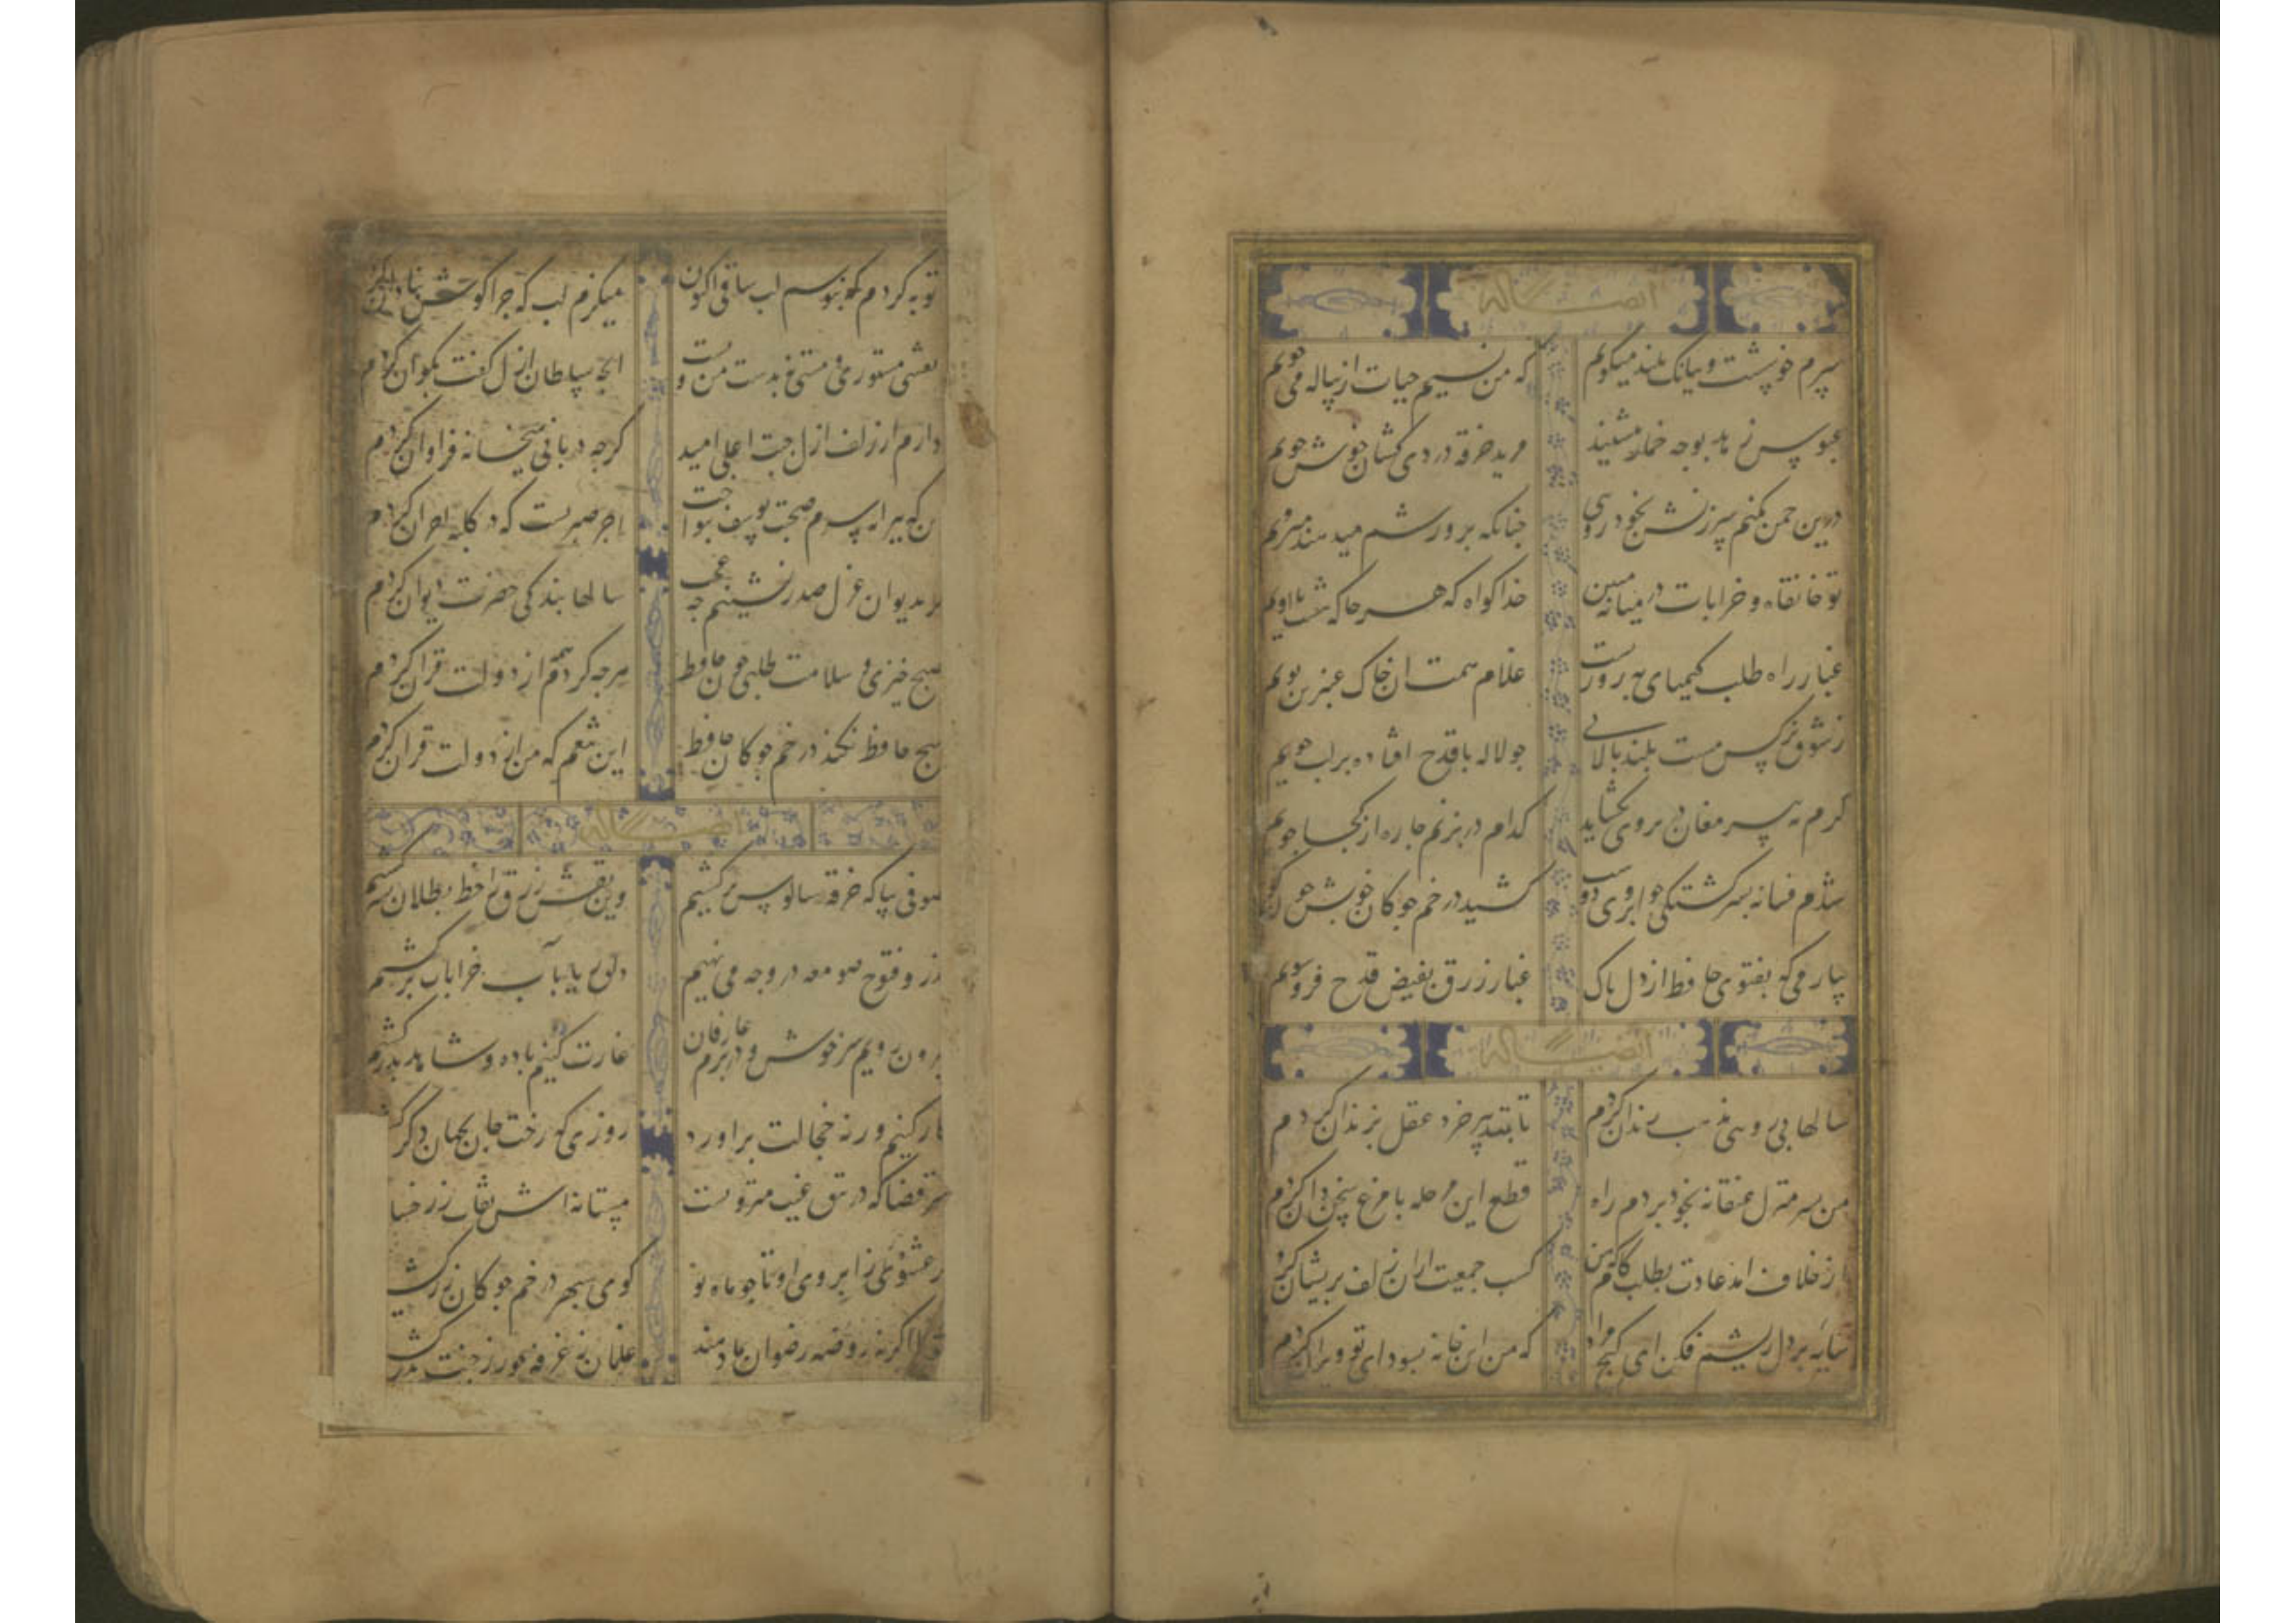 ایضا له
سرم خوشست و ببانک بلند میکویم که من نسیم حیات از پیاله می جویم
عبوس زهد بوجه خمار ننشیند مرید خرقه دردی کشان خوش خویم
درین چمن نکنم سرزنش بخود رویی چنانکه پرورشم میدهند میرویم
تو خانقاه و خرابات در میانه مبین خدا کواه که هر جا که هست با اویم
غبار راه طلب کیمیای بهروزیست غلام همت ان خاک عنبرین بویم
ز شوق نرکس مست بلند بالایی چو لاله با قدح افتاده بر لب جویم
کرم نه پیر مغان در بروی بکشاید کدام در بزنم چاره از کجا جویم
شدم فسانه بسرکشتکی چو ابروی دوست کشید در خم چوکان خویش چون کویم
بیار می که بفتوی حافظ از دل پاک غبار زرق بفیض قدح فرو شویم
ایضا له
سالها پیروی مذهب رندان کردم تا بتدبیر خرد عقل بزندان کردم
من بسر منزل عنقا نه بخود بردم راه قطع این مرحله با مرغ سخن دان کردم
از خلاف امد عادت بطلب کام که من کسب جمعیت ازان زلف پریشان کردم
سایه بر دل ریشم فکن ای کنج مراد که من این خانه بسودای تو ویران کردم
توبه کردم که نبوسم لب ساقی اکنون میکزم لب که چرا کوش بنادان کردم
نقش مستوری و مستی نه بدست من و تست انچه سلطان ازل کفت بکو ان کردم
دارم از لطف ازل جنت اعلی امید کرچه دربانی میخانه فراوان کردم
این که پیرانه سرم صحبت یوسف بنواخت اجر صبریست که در کلبه احزان کردم
کر بدیوان غزل صدر نشینم چه عجب سالها بندکی حضرت دیوان کردم
صبح خیزی و سلامت طلبی چون حافظ هرچه کردم همه از دولت قران کردم
هیچ حافظ نکند در خم چوکان حافظ این تنعم که من از دولت قران کردم
ایضا له
صوفی بیا که خرقه سالوس برکشیم وین نقش زرق را خط بطلان بسر کشیم
نذر و فتوح صومعه در وجه می نهیم دلق ریا بآب خرابات برکشیم
بیرون رویم سرخوش و در بزم عارفان غارت کنیم باده و شاهد ببر کشیم
کار کنیم ورنه خجالت براورد روزی که رخت جان بجهان دکر
سر قضا که در تتق غیب منزویست مستانه اش نقاب ز رخسا
عشوه ز ابروی او تا چو ماه نو کوی سپهر در خم چوکان زر کش
فردا اکر نه روضه رضوان بما دهند غلمان ز غرفه حور ز جنت بدر کش